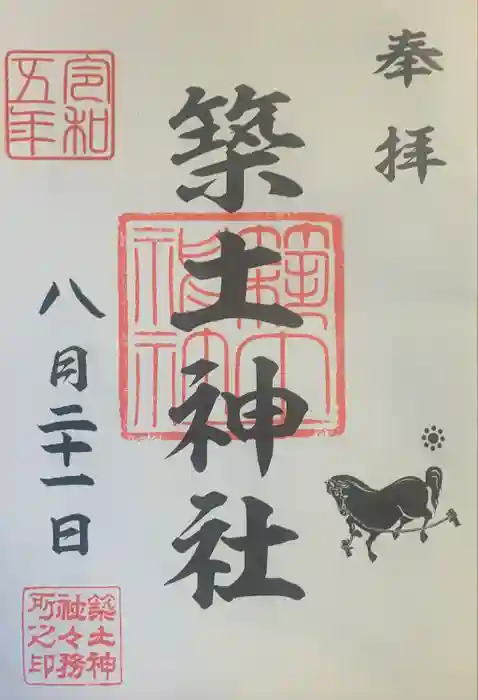 奉拝
築土神社
築土神社
令和五年
八月二十一日
築土神社々務所之印